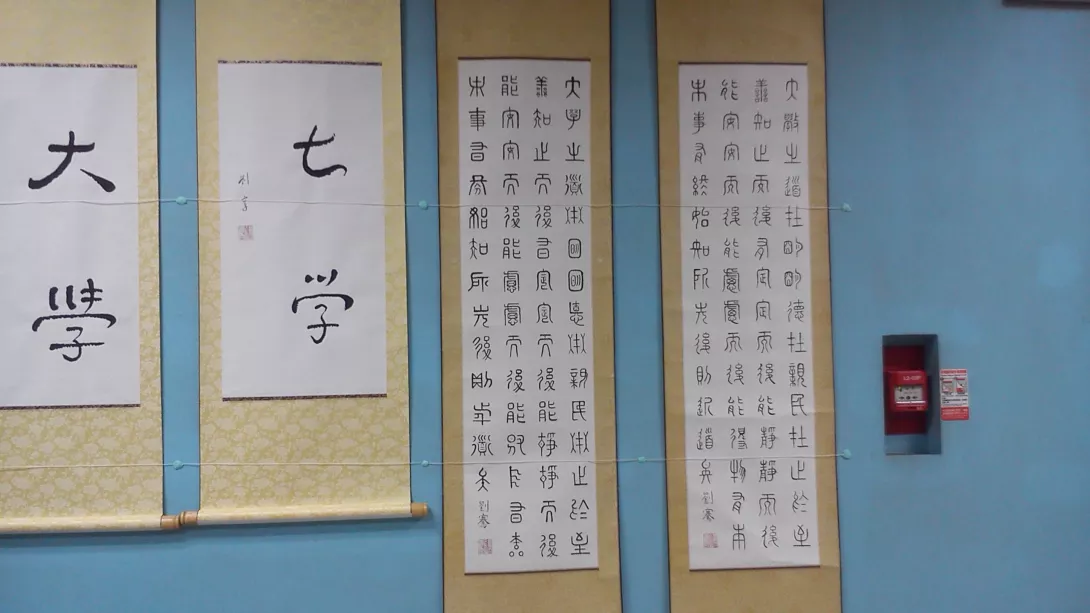 大斆之道在明明德在親民在止於至
善知止而後有定定而後能靜靜而後
能安安而後能慮慮而後能得物有本
末事有終始知所先後則近道矣
劉
大學之道在明明德在親民在止於至
善知止而後有定定而後能靜靜而後
能安安而後能慮慮而後能得物有本
末事有終始知所先後則近道矣
劉
大学
大學